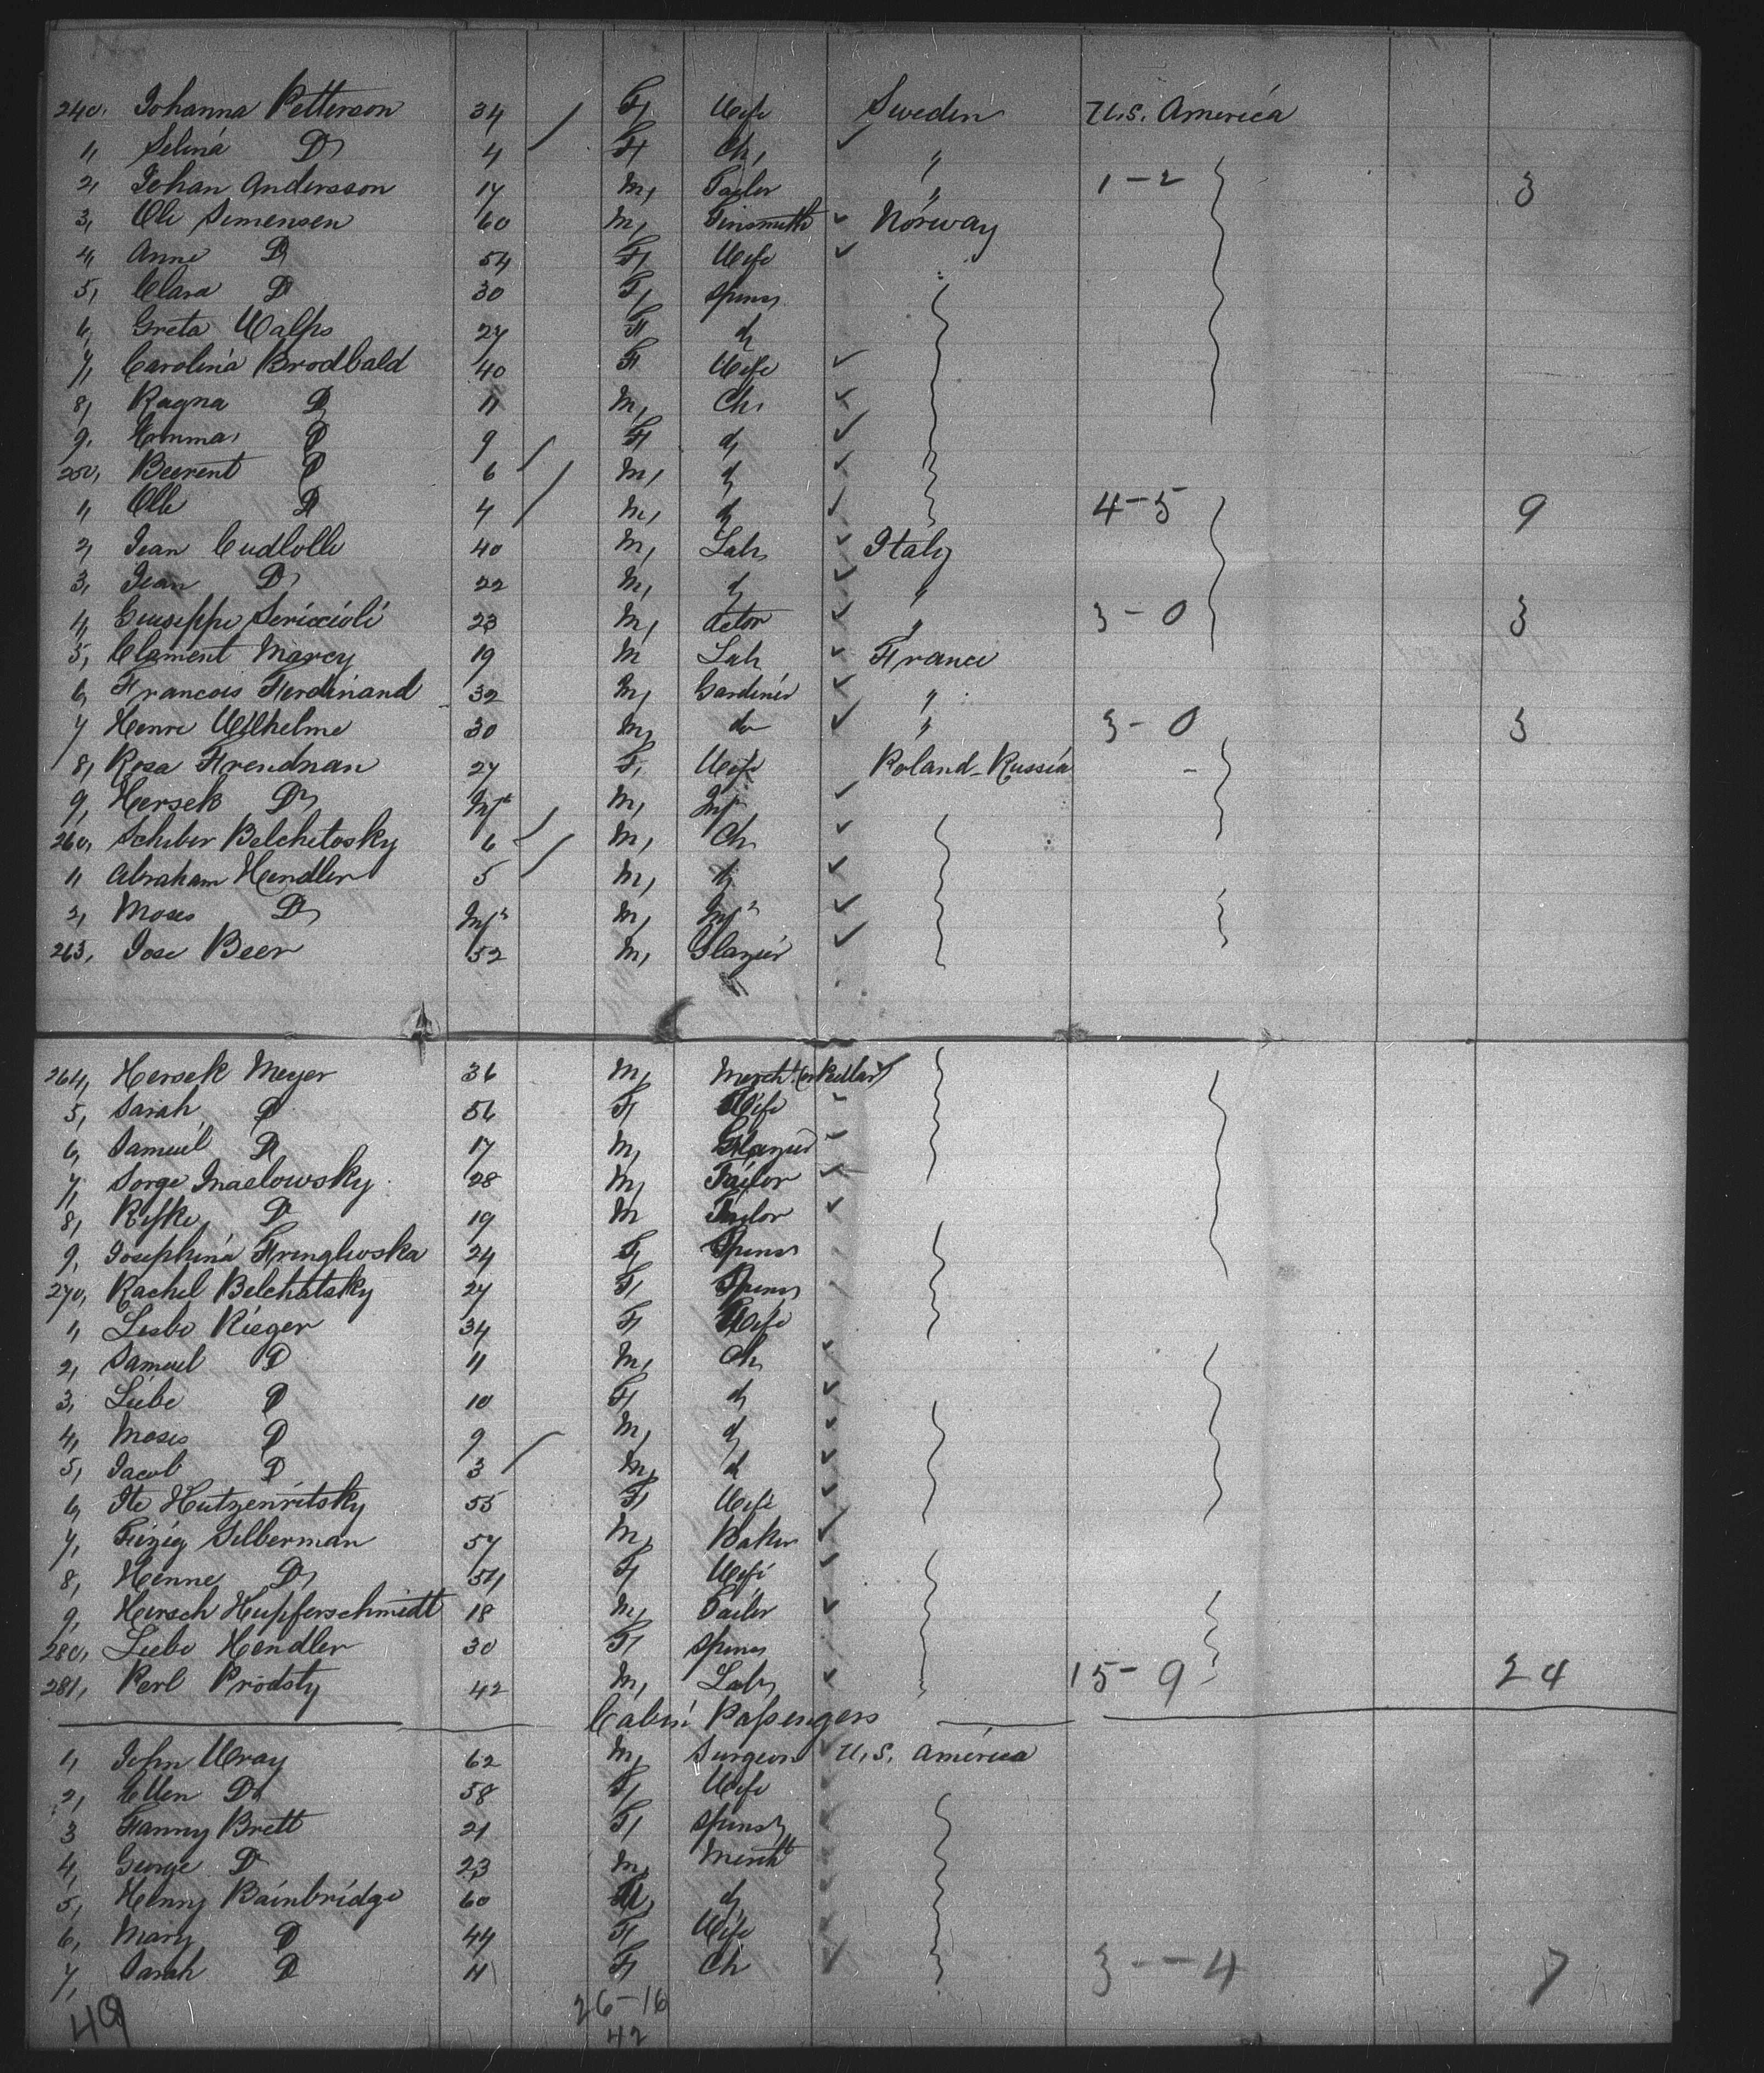 240, Johanna Petterson 34 F, Wife Sweden U.S. America
1, Selina Do 4 F, Ch, ✓ "
2, Johan Andersson 17 M, Tailor " 1-2 3
3, Ole Simensen 60 M, Tinsmith ✓ Norway
4, Anne Do 54 F, Wife ✓
5, Clara Do 30 F, Spins
6, Greta 27 F, do
7, Carolina Brodbald 40 F Wife ✓
8, Ragna Do 11 M, Ch, ✓
9, Emma, Do 9 F, do ✓
250, Beerent Do 6 M, do ✓
1, Olle Do 4 M, do ✓ 4-5 9
2, Jean Cudlolle 40 M, Lab, ✓ Italy
3, Jean Do 22 M, do ✓ "
4, Guiseppe Sericcioli 23 M, Actor ✓ " 3-0 3
5, Clament Marcy 19 M Lab ✓ France
6, Francois Ferdinand 32 M, Gardener ✓ "
7 Henre Wilhelme 30 M, do ✓ " 3-0 3
8, Rosa Frendnan 27 F, Wife Poland-Russia -
9, Hersek Do Inft M, Inf ✓
260, Schiber Belchetosky 6 M, Ch, ✓
11 Abraham Hendler 5 M, do ✓
2, Moses Do Inft M, Inft ✓
263, Jose Beer 52 M, Glazier ✓
264, Hersek Meyer 36 M, Mercht (or Pedlar) ✓
5, Sarah Do 56 F, Wife ✓
6, Samuel Do 17 M, Glazier ✓
7, Sorge 28 M, Tailor ✓
8, Rifke Do 19 M Tailor ✓
9, Josephina 24 F, Spins
270, Rachel Belchatsky 27 F, Spins
1, Liebe Rieger 34 F Wife
2, Samuel Do 11 M, Ch, ✓
3, Liebe Do 10 F, do ✓
4, Moses Do 9 M, do ✓
5, Jacob Do 3 M, do ✓
6, Ite Hutzenritsky 55 F, Wife ✓
7, Silberman 57 M, Baker ✓
8, Henne Do 54 F, Wife ✓
9, Hersch Hupferschmidt 18 M, Tailor ✓
280, Liebe Hendler 30 F, Spins
281, Perl Prodsty 42 M, Lab, ✓ 15-9 24
Cabin Passengers
1, John Wray 62 M, Surgeon ✓ U.S. America
2, Ellen Do 58 F, Wife ✓
3 Fanny Brett 21 F, Spinst ✓
4, George Do 23 M, Mercht ✓
5, Henry Bainbridge 60 M, do ✓
6, Mary Do 44 F, Wife ✓
7, Sarah Do 11 F, Ch ✓ 3--4 7
49 26-16
42